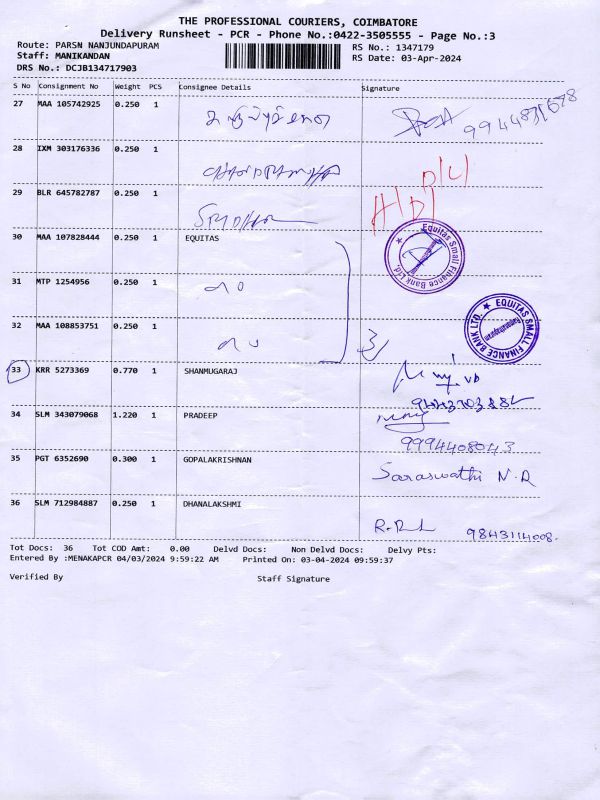 THE PROFESSIONAL COURIERS, COIMBATORE
Delivery Runsheet - PCR - Phone No.:0422-3505555 - Page No.:3
Route: PARSN NANJUNDAPURAM
RS No.: 1347179
Staff: MANIKANDAN
RS Date: 03-Apr-2024
DRS No.: DCJB134717903
S No Consignment No Weight PCS Consignee Details Signature
27 MAA 105742925 0.250 1
28 IXM 303176336 0.250 1
D/L/
29 BLR 645782787 0.250 1
SRIDHAR
30 MAA 107828444 0.250 1 EQUITAS
Equitas Small Finance Bank Ltd.
31 MTP 1254956 0.250 1
32 MAA 108853751 0.250 1
3
EQUITAS SMALL FINANCE BANK LTD.
33 KRR 5273369 0.770 1 SHANMUGARAJ
34 SLM 343079068 1.220 1 PRADEEP
9994408043
35 PGT 6352690 0.300 1 GOPALAKRISHNAN
Saraswathi N.R
36 SLM 712984887 0.250 1 DHANALAKSHMI
9843114008.
Tot Docs: 36 Tot COD Amt: 0.00 Delvd Docs: Non Delvd Docs: Delvy Pts:
Entered By :MENAKAPCR 04/03/2024 9:59:22 AM Printed On: 03-04-2024 09:59:37
Verified By Staff Signature